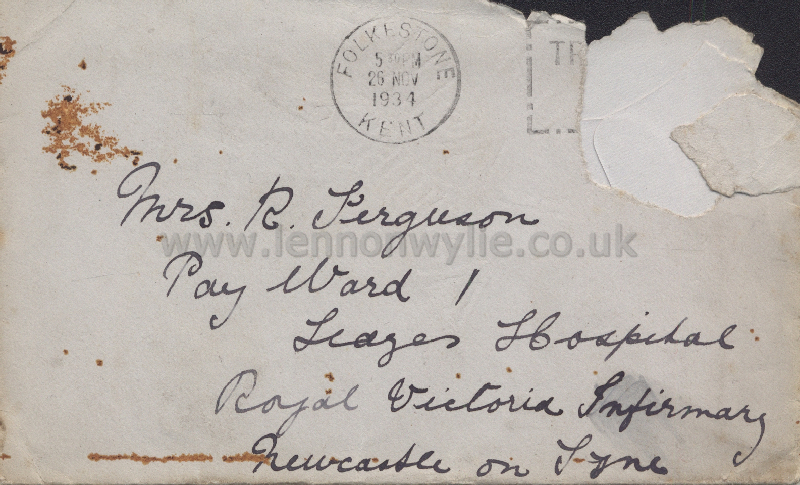 FOLKESTONE
26 NOV
1934
KENT
TR
Mrs. R. Ferguson
www.lennonwylie.co.uk
Pay Ward 1
Leazes Hospital
Royal Victoria Infirmary
Newcastle on Tyne